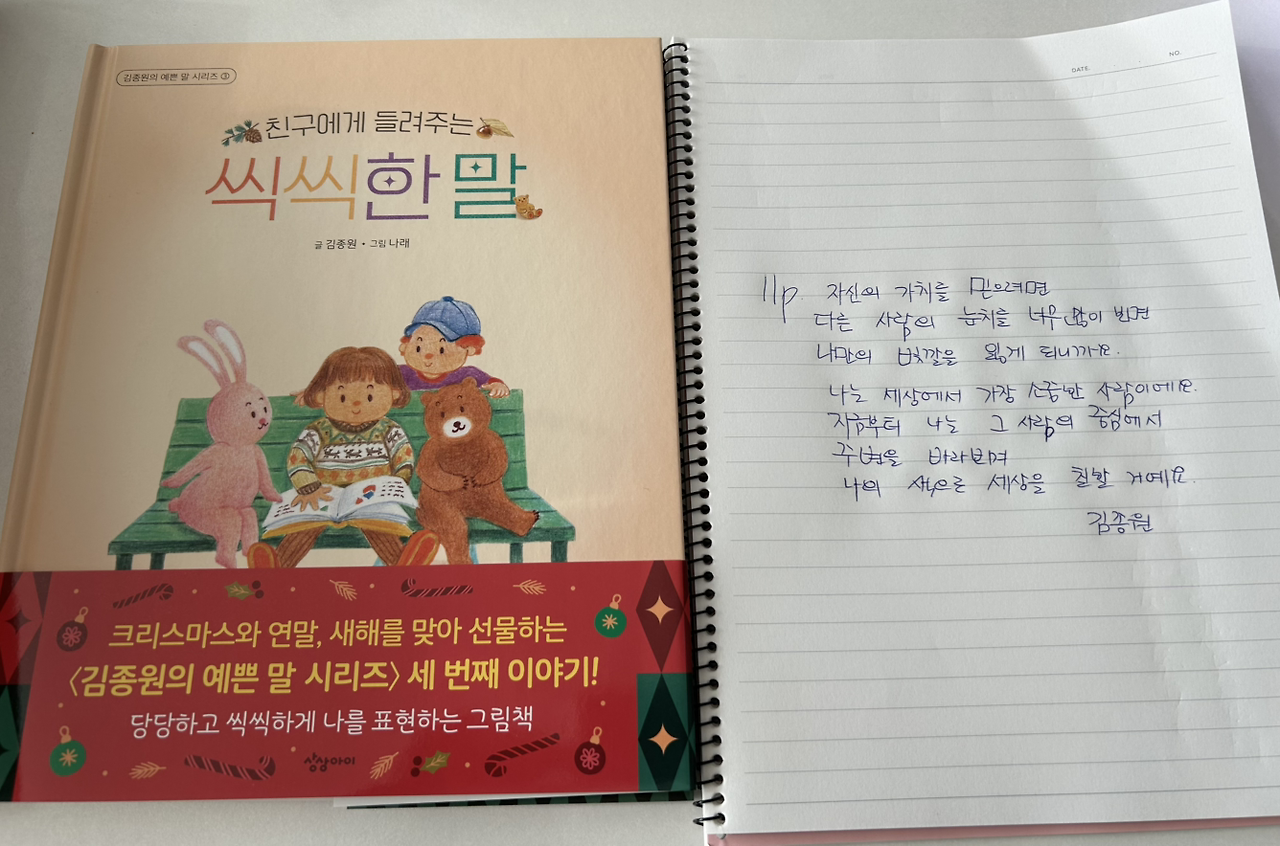 김종원의 예쁜 말 시리즈 ③
친구에게 들려주는
씩씩한 말
글 김종원 • 그림 나래
크리스마스와 연말, 새해를 맞아 선물하는
〈김종원의 예쁜 말 시리즈〉 세 번째 이야기!
당당하고 씩씩하게 나를 표현하는 그림책
상상아이
DATE. NO.
11p. 자신의 가치를 믿으려면
다른 사람의 눈치를 너무 많이 보면
나만의 빛깔을 잃게 되니까요.
나는 세상에서 가장 소중한 사람이에요.
지금부터 나는 그 사람의 중심에서
주변을 바라보며
나의 색으로 세상을 칠할 거예요.
김종원